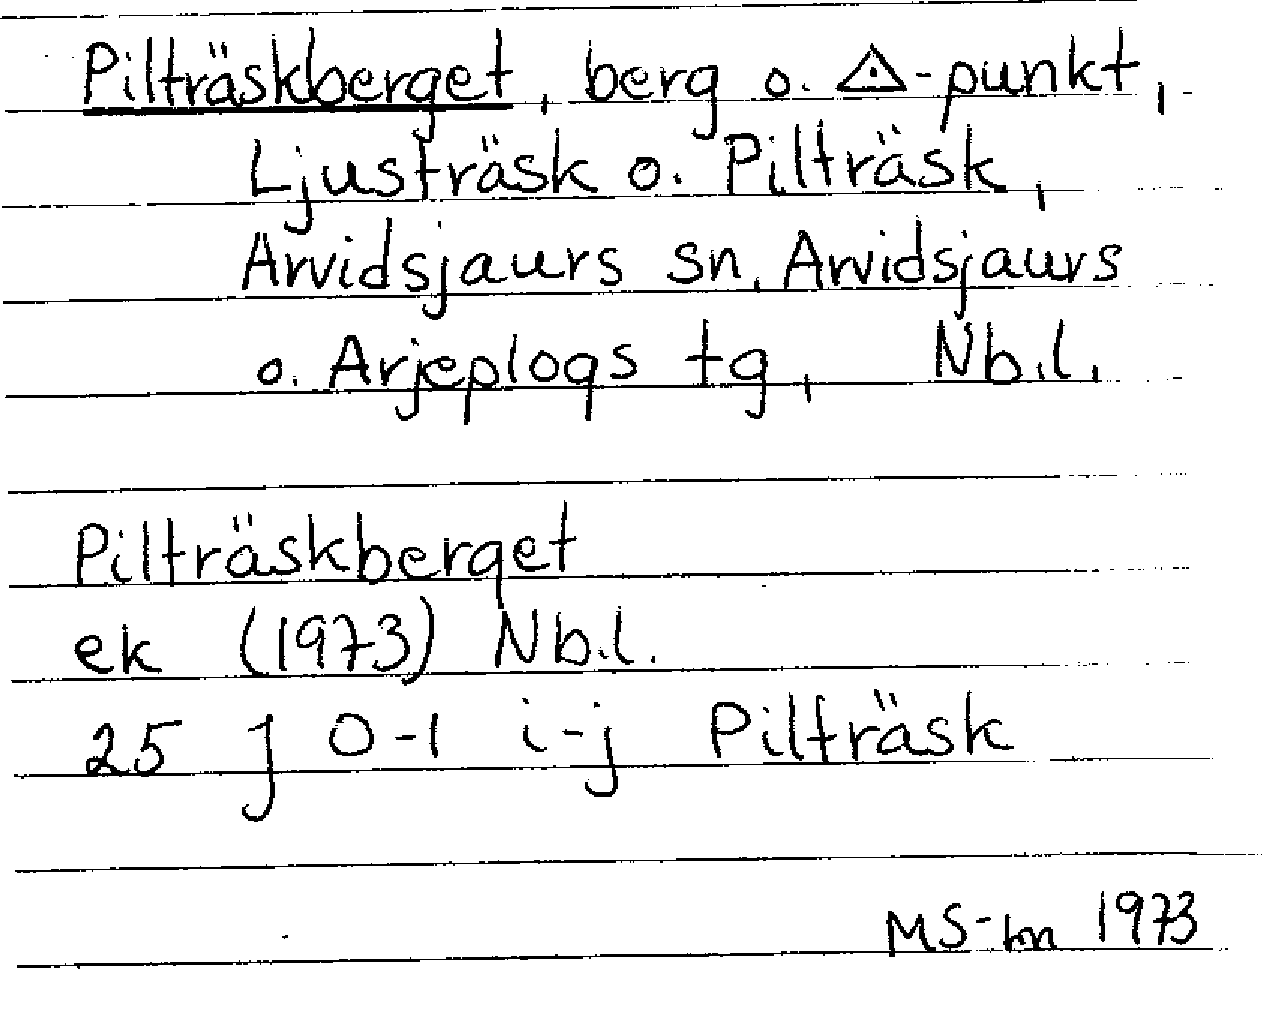 Pilträskberget, berg o. ⟁-punkt,
Ljusträsk o. Pilträsk,
Arvidsjaurs sn, Arvidsjaurs
o. Arjeplogs tg, Nb.l.
Pilträskberget
ek (1973) Nb.l.
25 J 0-1 i-j Pilträsk
MS-bn 1973